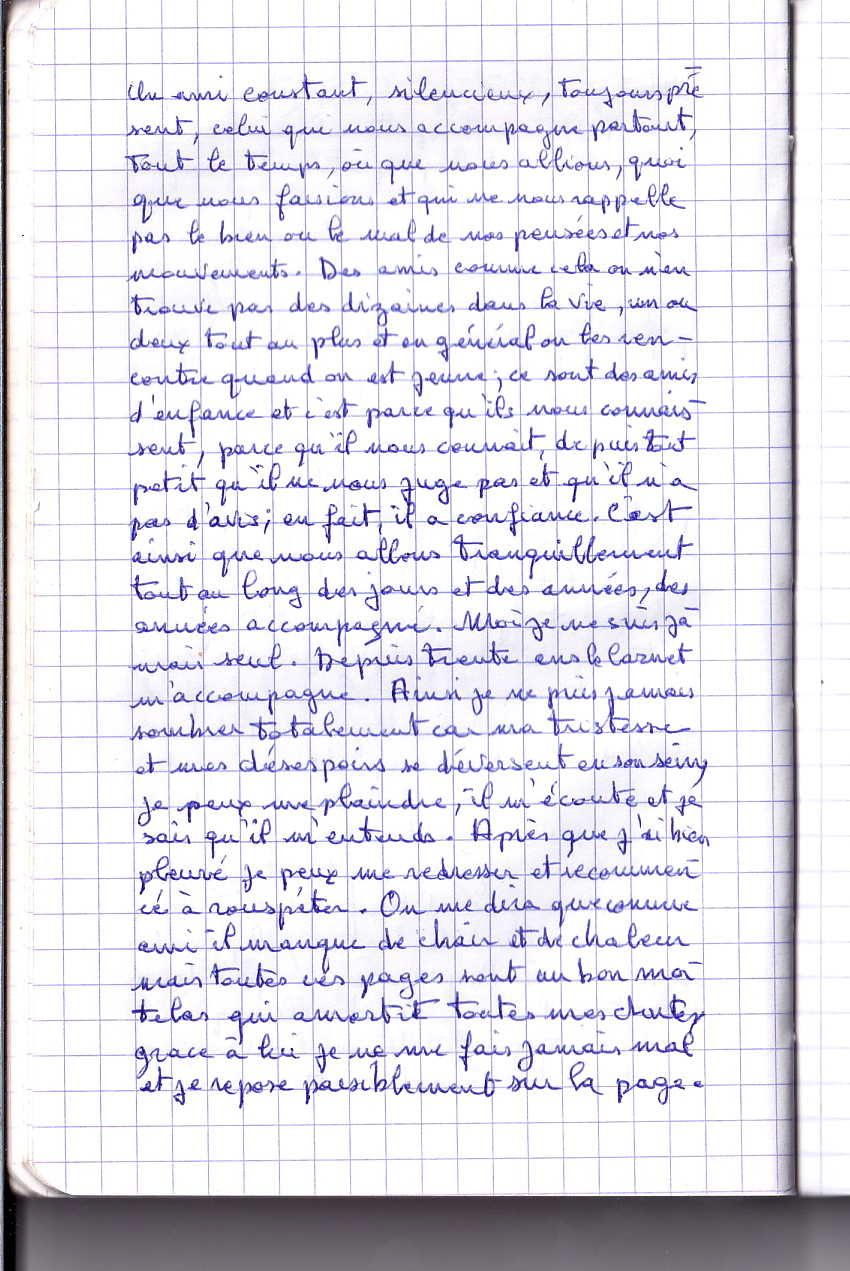 Un ami constant, silencieux, toujours pré
sent, celui qui nous accompagne partout,
tout le temps, où que nous allions, quoi
que nous faisions et qui ne nous rappelle
pas le bien ou le mal de nos pensées et nos
mouvements. Des amis comme cela on n'en
trouve pas des dizaines dans la vie, un ou
deux tout au plus et en général on les ren-
contre quand on est jeune; ce sont des amis
d'enfance et c'est parce qu'ils nous connais
sent, parce qu'il nous connait, depuis tout
petit qu'il ne nous juge pas et qu'il n'a
pas d'avis; en fait, il a confiance. C'est
ainsi que nous allons tranquillement
tout au long des jours et des années, des
années accompagné. Moi je ne suis ja
mais seul. Depuis trente ans le Carnet
m'accompagne. Ainsi je ne puis jamais
sombrer totalement car ma tristesse
et mes désespoirs se déversent en son sein,
je peux me plaindre, il m'écoute et je
sais qu'il m'entends. Après que j'ai bien
pleuré je peux me redresser et recommen
cé à rouspéter. On me dira que comme
ami il manque de chair et de chaleur
mais toutes ces pages sont un bon ma
telas qui amortit toutes mes chutes,
grace à lui je ne me fais jamais mal
et je repose paisiblement sur la page.